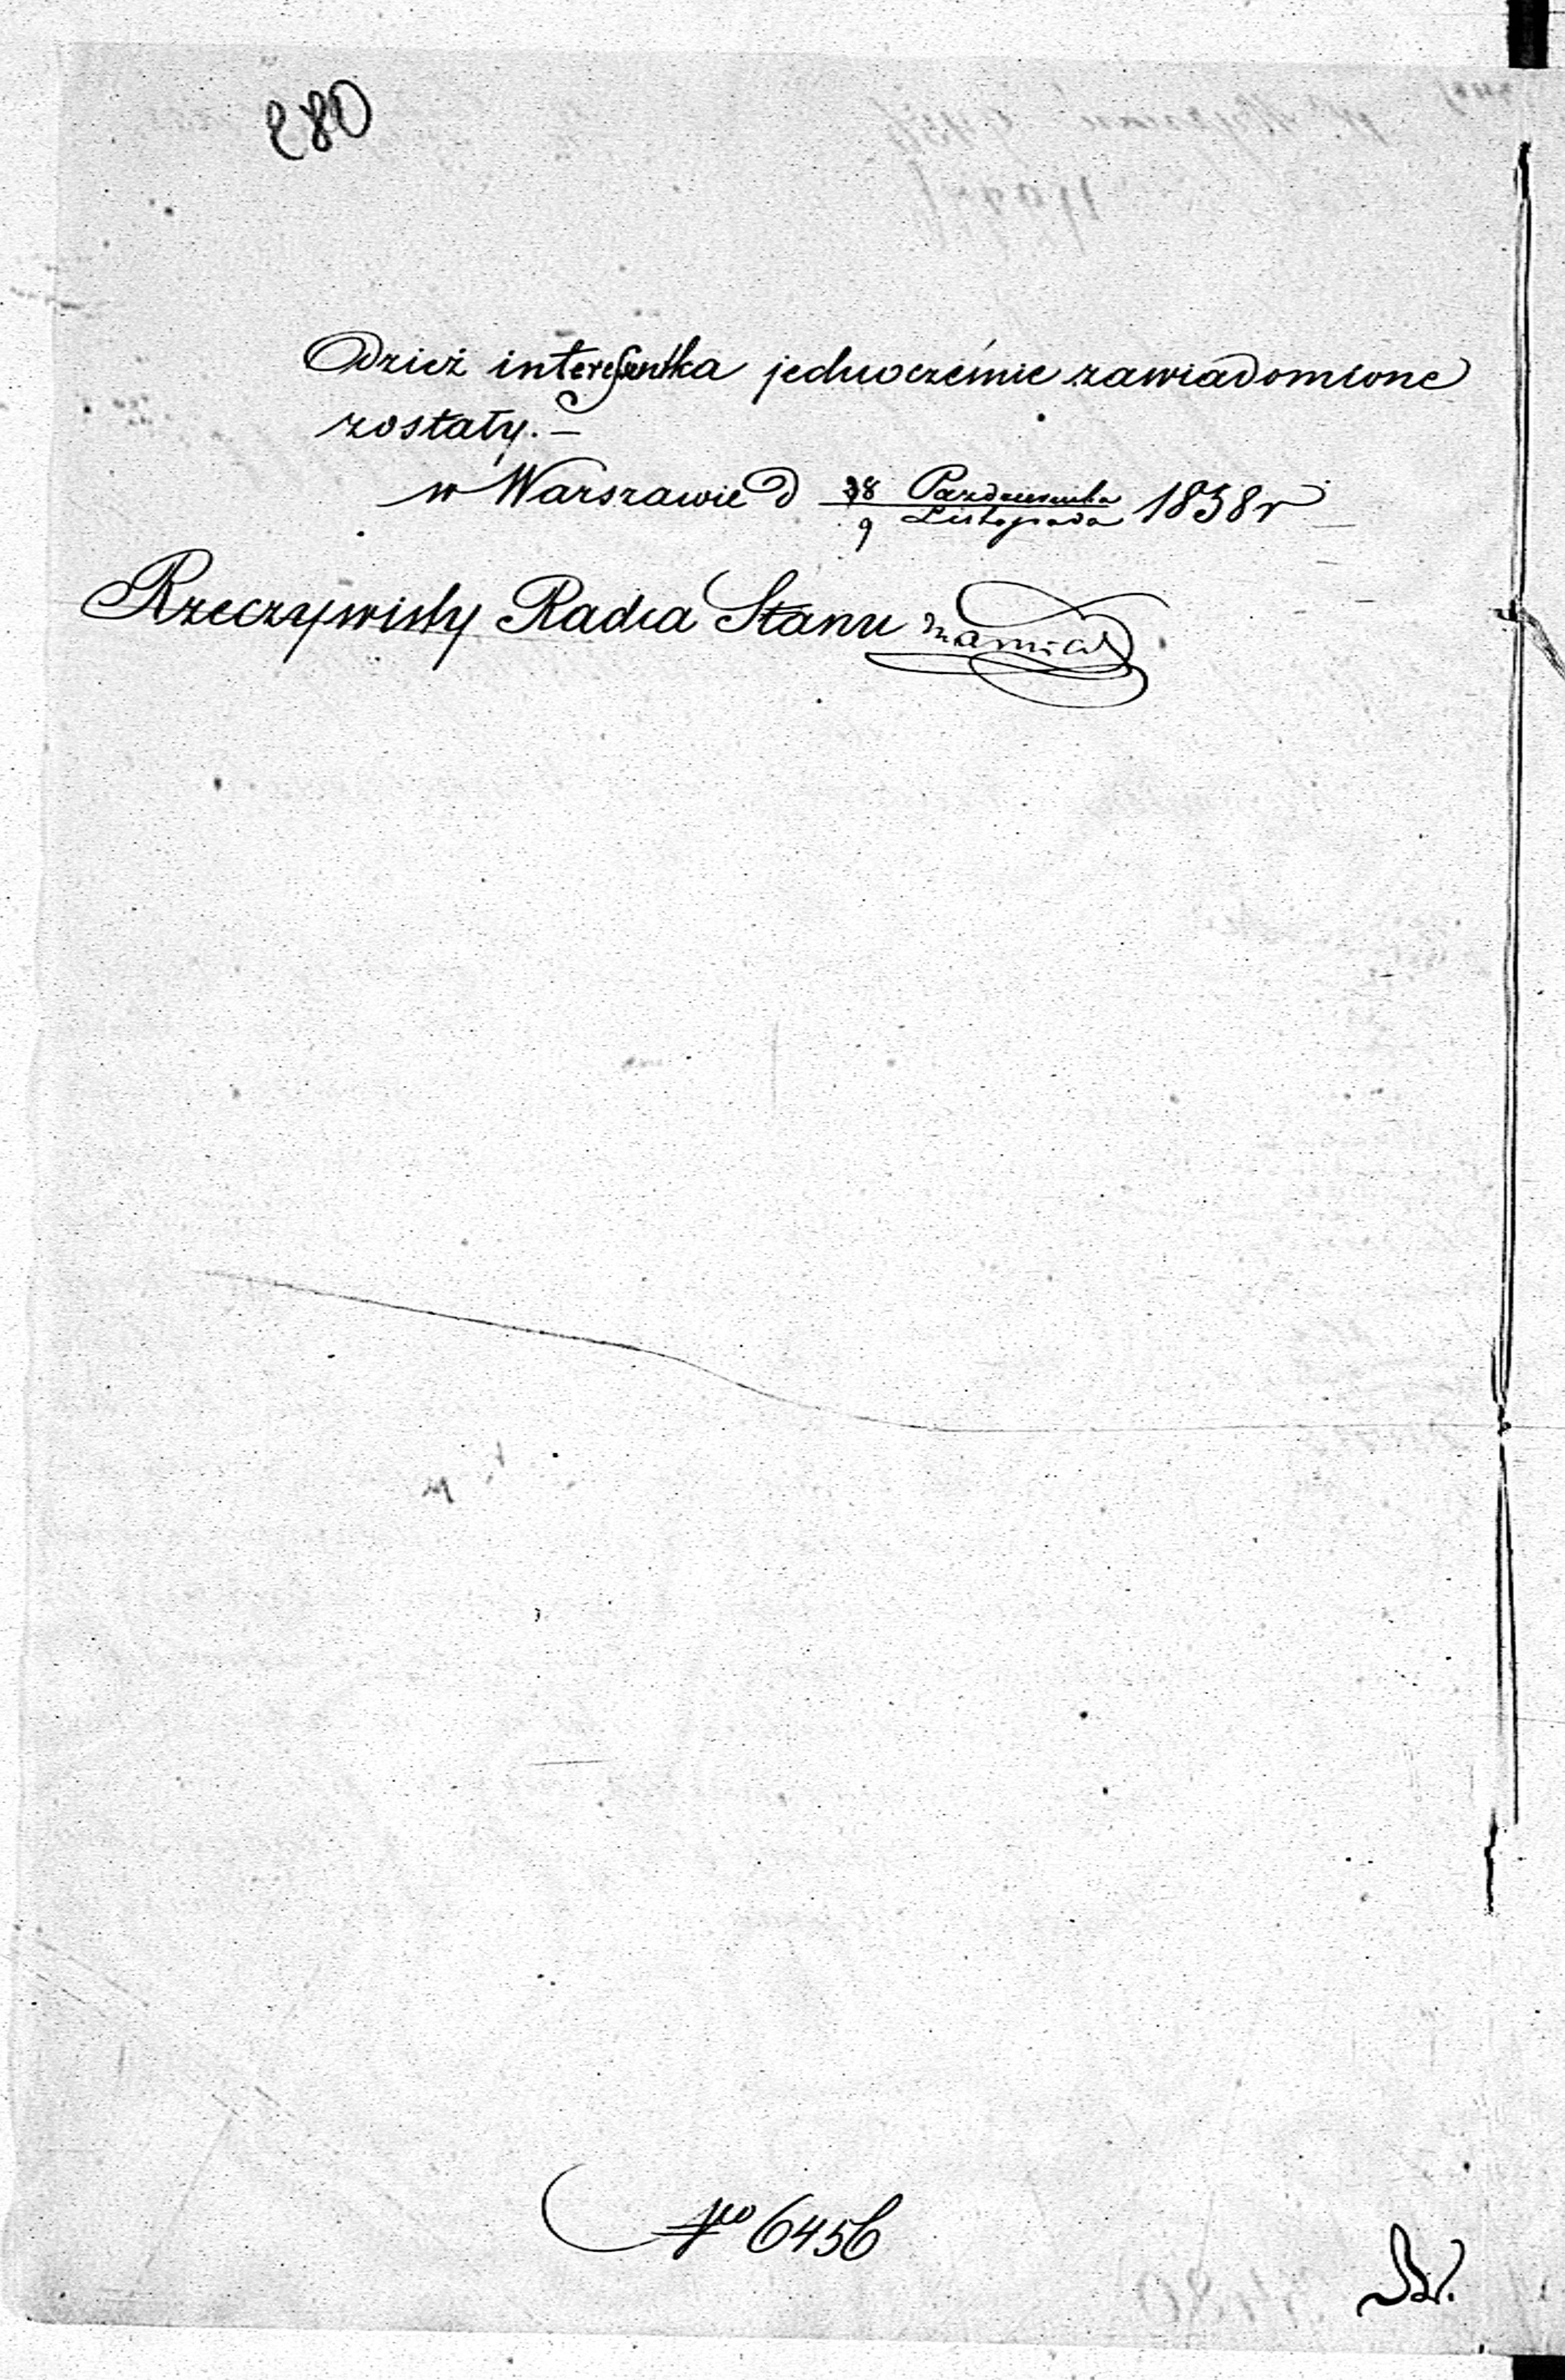 280
Odzież interesentka jednocześnie zawiadomione
zostały. —
w Warszawie d 28 Października / 9 Listopada 1838 r
Rzeczywisty Radca Stanu
No 6456